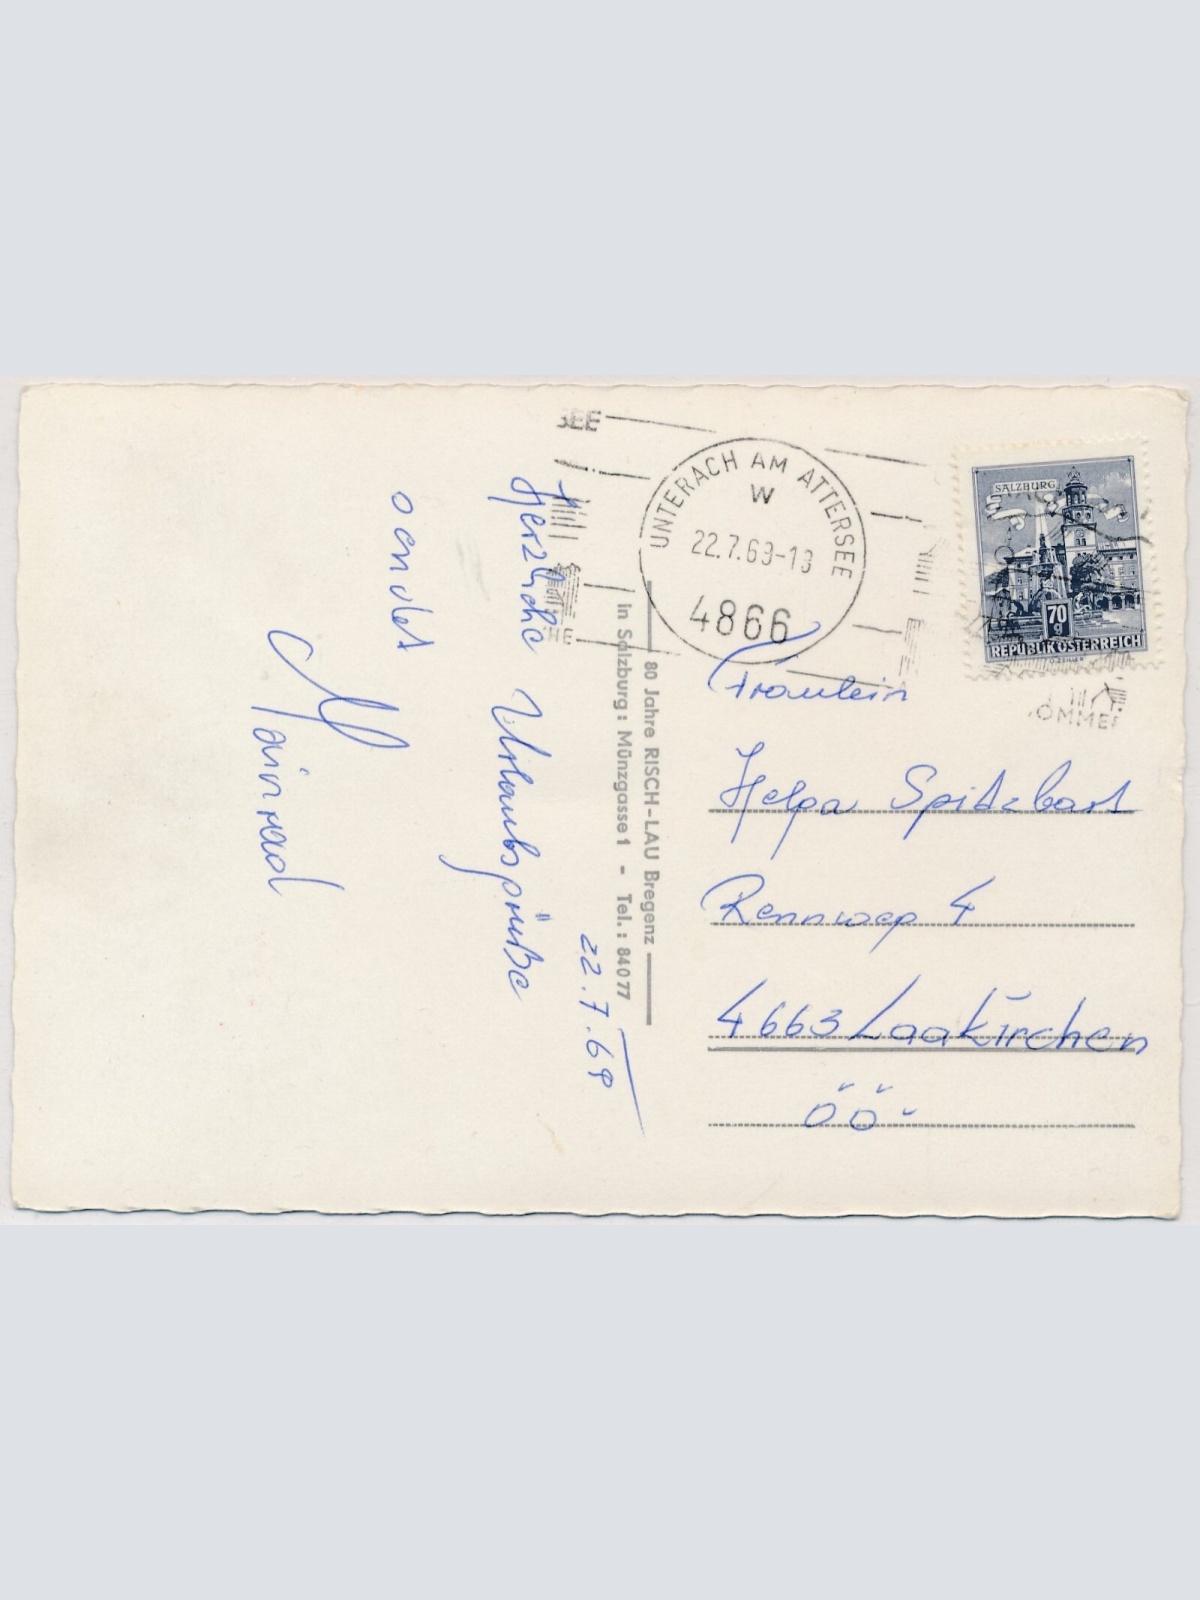 22.7.69
Herzliche Urlaubsgrüße
sendet
Mainrad
80 Jahre RISCH-LAU Bregenz
in Salzburg: Münzgasse 1 - Tel.: 84077
SEE
UNTERACH AM ATTERSEE
W
22.7.69-19
4866
SALZBURG
70
g
REPUBLIK ÖSTERREICH
Fräulein
Helga Spitzbart
Rennweg 4
4663 Laakirchen
OÖ.